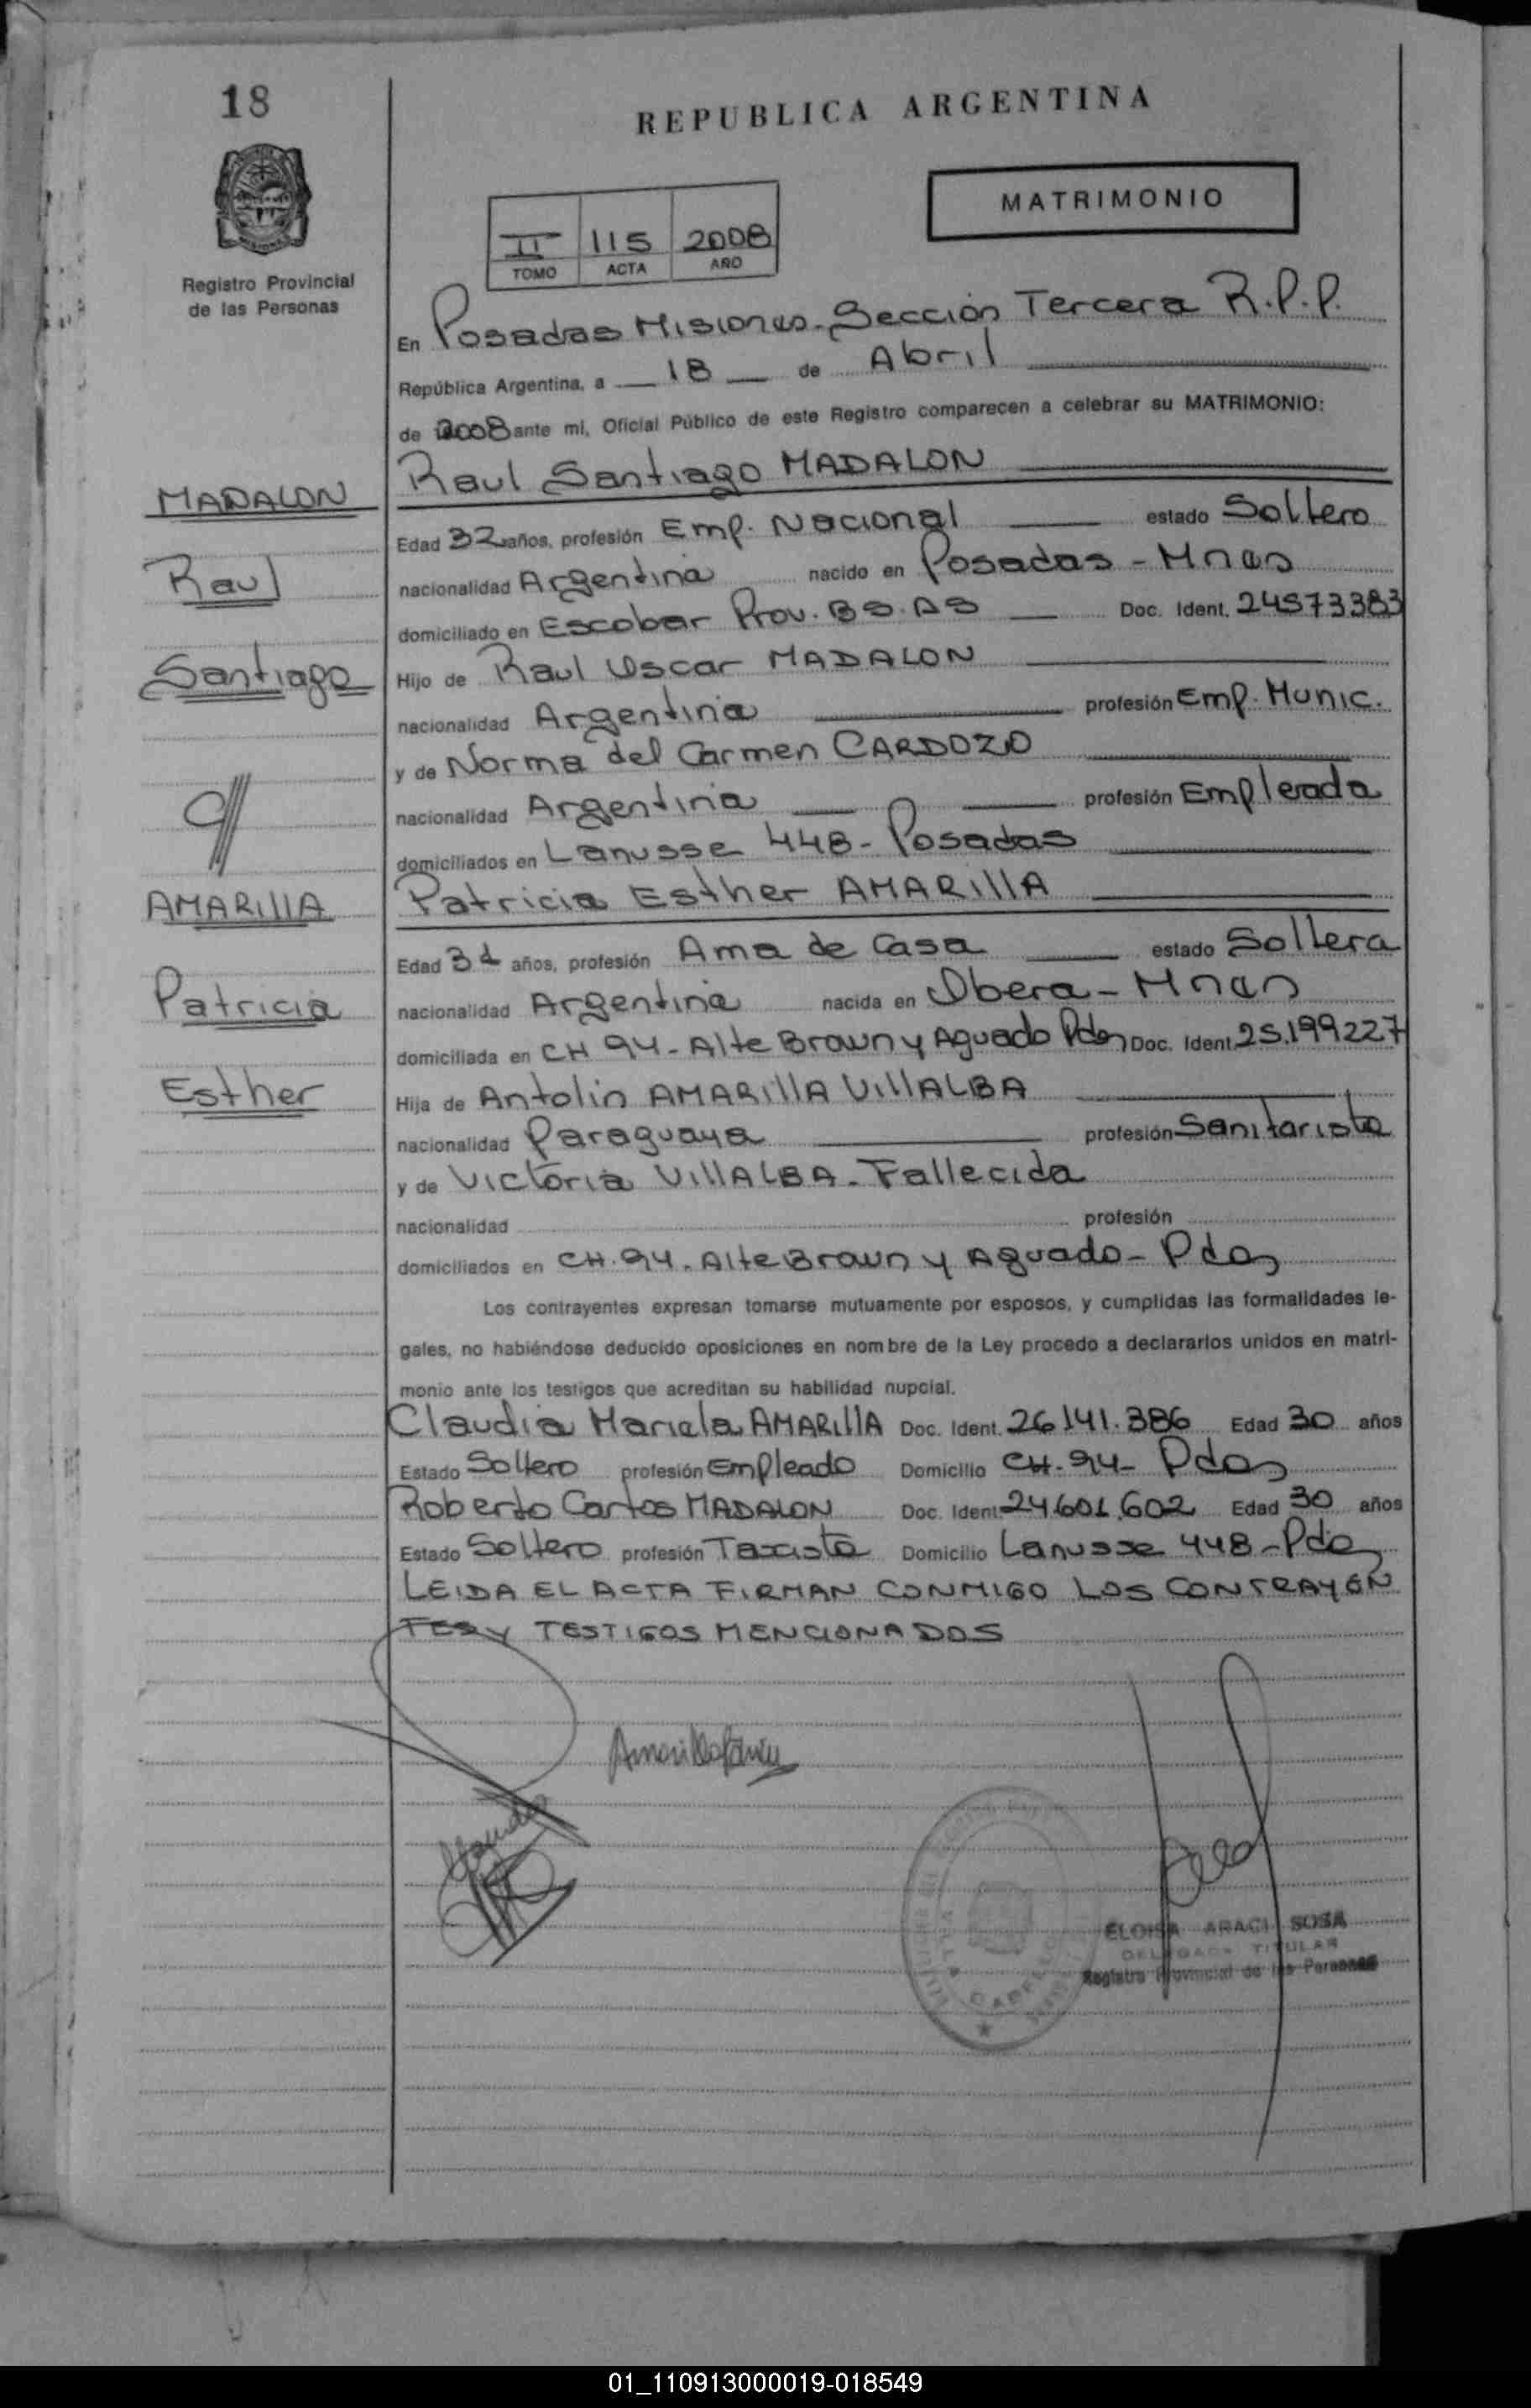 18
REPUBLICA ARGENTINA
MATRIMONIO
Registro Provincial
de las Personas
II 115 2008
TOMO ACTA AÑO
En Posadas Misiones - Sección Tercera R.P.P.
República Argentina, a 18 de Abril
de 2008 ante mí, Oficial Público de este Registro comparecen a celebrar su MATRIMONIO:
Raul Santiago MADALON
MADALON
Edad 32 años, profesión Emp. Nacional estado Soltero
Raul
nacionalidad Argentina nacido en Posadas - Mnes
domiciliado en Escobar Prov. BS. AS Doc. Ident. 24573383
Santiago
Hijo de Raul Oscar MADALON
nacionalidad Argentina profesión Emp. Munic.
y de Norma del Carmen CARDOZO
nacionalidad Argentina profesión Empleada
domiciliados en Lanusse 448 - Posadas
AMARIllA
Patricia Esther AMARIllA
Edad 31 años, profesión Ama de Casa estado Soltera
Patricia
nacionalidad Argentina nacida en Obera - Mnes
domiciliada en CH 94 - Alte Brown y Aguado Pdas Doc. Ident. 25.199227
Esther
Hija de Antolin AMARIllA VIllALBA
nacionalidad Paraguaya profesión Sanitarista
y de Victoria VIllALBA - Fallecida
nacionalidad profesión
domiciliados en CH. 94. Alte Brown y Aguado - Pdas
Los contrayentes expresan tomarse mutuamente por esposos, y cumplidas las formalidades le-
gales, no habiéndose deducido oposiciones en nombre de la Ley procedo a declararlos unidos en matri-
monio ante los testigos que acreditan su habilidad nupcial.
Claudia Mariela AMARIllA Doc. Ident. 26141.386 Edad 30 años
Estado Soltero profesión Empleado Domicilio CH. 94 - Pdas
Roberto Carlos MADALON Doc. Ident. 24.601.602 Edad 30 años
Estado Soltero profesión Taxista Domicilio Lanusse 448 - Pdas
LEIDA EL ACTA FIRMAN CONMIGO LOS CONTRAYEN
TES Y TESTIGOS MENCIONADOS
ELOISA ARACI SOSA
DELEGADA TITULAR
Registro Provincial de las Personas
01_110913000019-018549